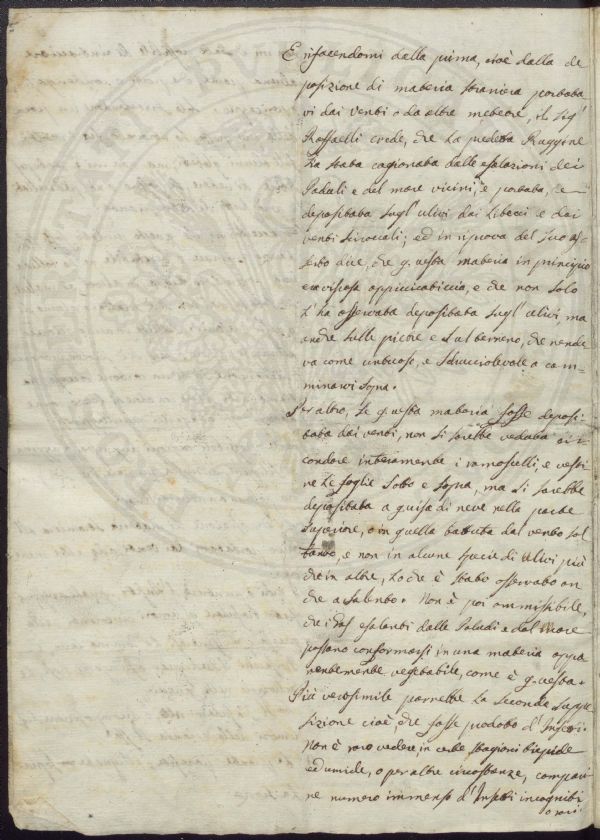 E rifacendomi dalla prima, cioè dalla de
posizione di materia straniera portata
vi dai venti o da altre meteore, il Sig.r
Raffaelli crede, che la predetta Ruggine
sia stata cagionata dalle esalazioni dei
Paduli e del mare vicini, e portata, e
depositata sugl'ulivi dai Libecci e dai
venti Sciroccali; ed in riprova del suo as=
serto dice, che questa materia in principio
era viscosa appiccicaticcia, e che non solo
l'ha osservata depositata sugl'ulivi, ma
anche sulle pietre e sul terreno, che rende
va come untuoso, e sdrucciolevole a cam=
minarvi sopra.
Per altro, se questa materia fosse deposi
tata dai venti, non si sarebbe veduta cir
condare interamente i ramoscelli, e vesti
re le foglie sotto e sopra, ma si sarebbe
depositata a guisa di neve nella parte
superiore, o in quella battuta dal vento sol
tanto, e non in alcune specie di ulivi più
che in altre, lo che è stato osservato an
che a Salento. Non è poi ammissibile,
che i esalanti dalle Paludi e dal Mare
possano conformarsi in una materia appa
rentemente vegetabile, come è questa.
Più verosimile parrebbe la seconda suppo
sizione cioè che fosse prodotto d'Insetti.
Non è raro vedere, in certe stagioni tiepide
ed umide, o per altre circostanze, compari
re numero immenso d'Insetti incogniti
o rari